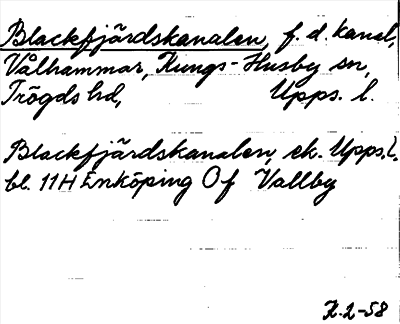 Blackfjärdskanalen, f. d. kanal,
Vålhammar, Kungs-Husby sn,
Trögds hd, Upps. l.
Blackfjärdskanalen, ek. Upps. l.
bl. 11H Enköping Of Vallby
K.2-58